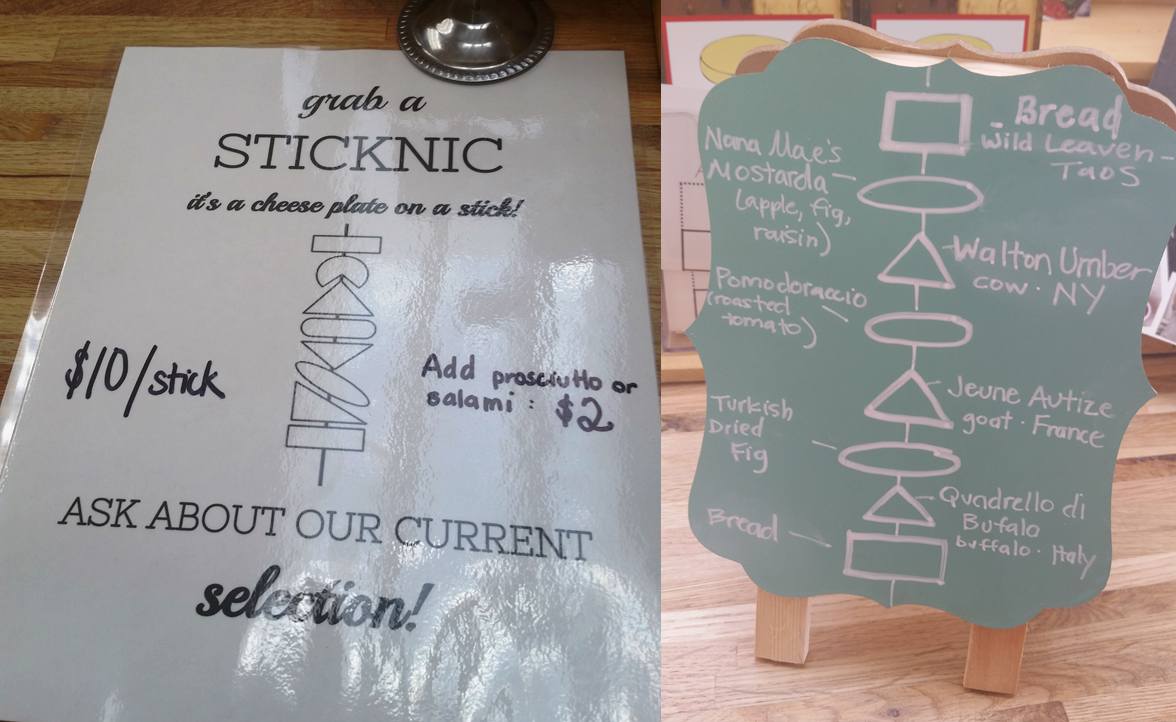 grab a
STICKNIC
it's a cheese plate on a stick!
$10/stick
Add prosciutto or
salami: $2
ASK ABOUT OUR CURRENT
selection!
Bread
Wild Leaven
Taos
Nana Mae's
Mostarda
(apple, fig,
raisin)
Walton Umber
cow · NY
Pomodoraccio
(roasted
tomato)
Jeune Autize
goat · France
Turkish
Dried
Fig
Quadrello di
Bufalo
buffalo · Italy
Bread